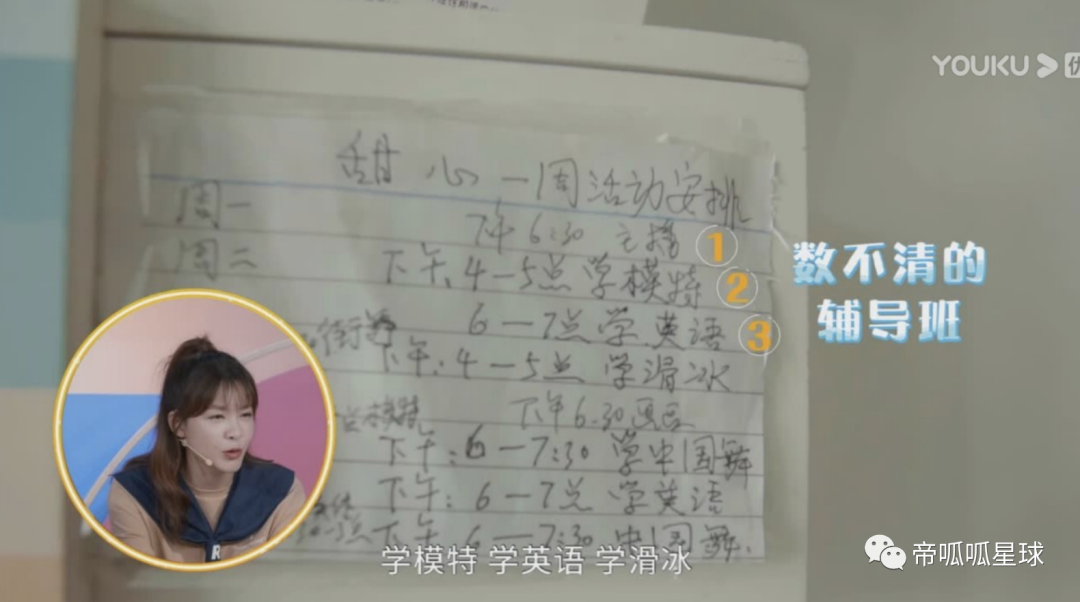 YOUKU 优
甜心一周活动安排
周一 下午6:30 主播 1
周二 下午:4一5点学模特 2
6一7点学英语 3
下午:4一5点 学滑冰
下午6.30画画
下午:6一7:30 学中国舞
下午:6一7点 学英语
下午 6一7:30 中国舞.
数不清的
辅导班
学模特 学英语 学滑冰
帝呱呱星球